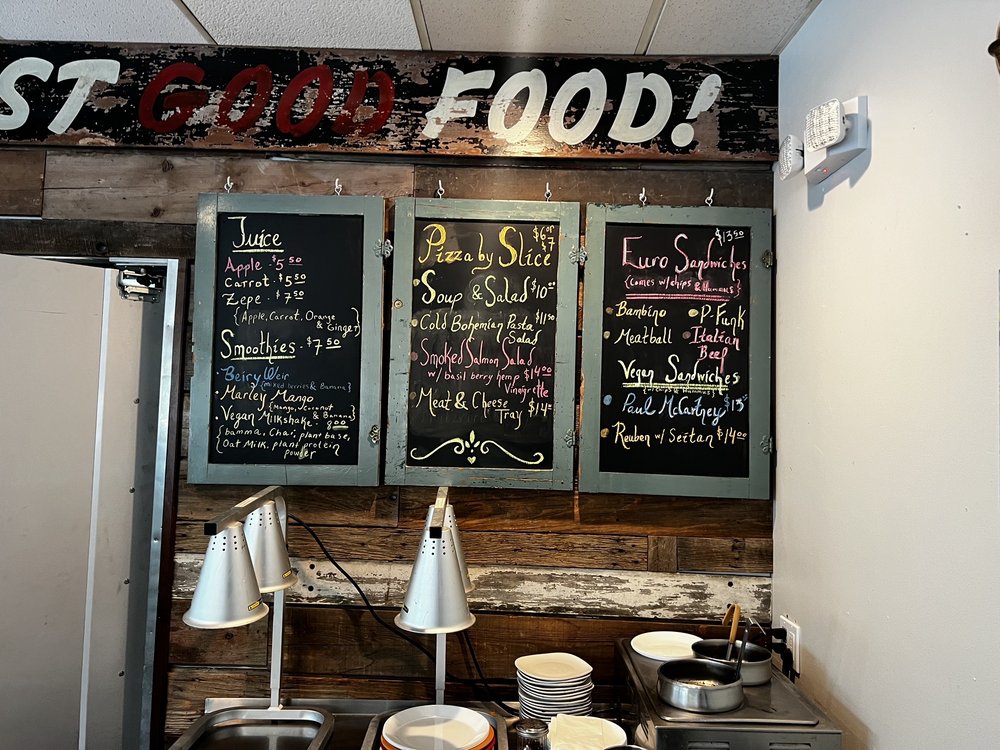 ST GOOD FOOD!
Juice
Apple · $5 50
Carrot · $5 50
Zepe · $7 50
{Apple, Carrot, Orange
& Ginger}
Smoothies · $7 50
Beiry Weir
{mixed berries & Banana}
· Marley Mango
{Mango, Coconut
& Banana}
Vegan Milkshake · 9 00
{bamma, Chai, plant base,
Oat Milk, plant protein
powder
Pizza by Slice $6 or $7
· Soup & Salad $10 00
· Cold Bohemian Pasta $11 50
Salad
Smoked Salmon Salad
w/ basil berry hemp $14 00
Vinaigrette
· Meat & Cheese
Tray $14 00
$13 50
Euro Sandwiches
{Comes w/chips & Hummus}
· Bambino
· P-Funk
· Meatball
· Italian
Beef
Vegan Sandwiches
· Paul McCartney $13 50
· Reuben w/ Seitan $14 00